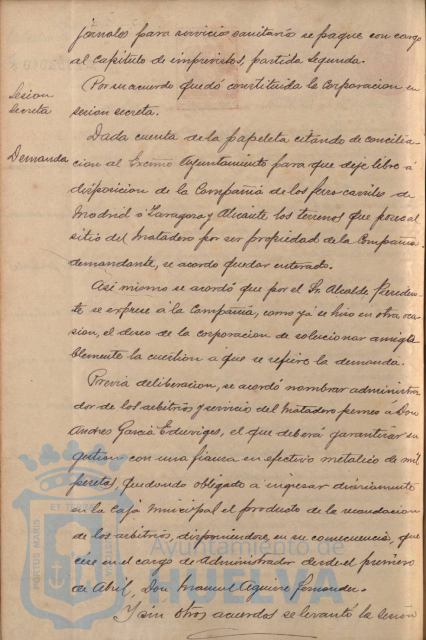 jornales para servicio sanitario se pague con cargo
al capitulo de imprevistos, partida segunda.
Por su acuerdo quedó constituida la corporacion en
Sesion
secreta
sesion secreta.
Dada cuenta de la papeleta citando de concilia-
Demanda
cion al Excmo Ayuntamiento para que deje libre á
disposicion de la Compañia de los ferro carriles de
Madrid á Zaragoza y Alicante los terrenos que posee al
sitio del Matadero por ser propiedad de la Compañia
demandante, se acordo quedar enterado.
Asi mismo se acordó que por el Sr. Alcalde Presiden-
te se exprese á la Compañia, como ya se hizo en otra oca-
sion, el deseo de la corporacion de solucionar amiga-
blemente la cuestion á que se refiere la demanda.
Previa deliberacion, se acordó nombrar administra-
dor de los arbitrios y servicio del Matadero á Don
Andres Garcia Eduviges, el que deberá garantizar su
gestion con una fianza en efectivo metalico de mil
pesetas, quedando obligado a ingresar diariamente
en la caja municipal el producto de la recaudacion
de los arbitrios, disponiendose, en su consecuencia, que
cese en el cargo de Administrador desde el primero
de Abril, Don Manuel Aguirre Fernandez.
Y sin otros acuerdos se levantó la sesion
PORTUS MARIS
ET
Ayuntamiento de
HUELVA